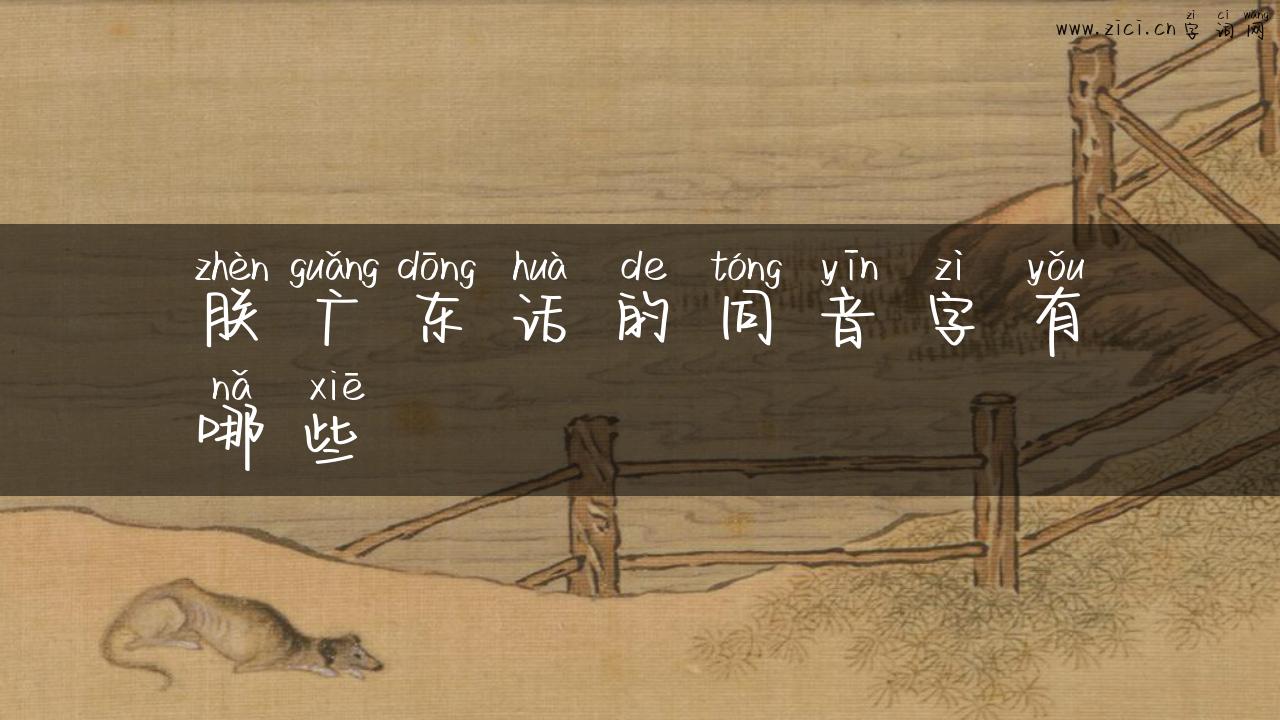 zì cí wǎng
www.zici.cn 字词网
zhèn guǎng dōng huà de tóng yīn zì yǒu
朕广东话的同音字有
nǎ xiē
哪些